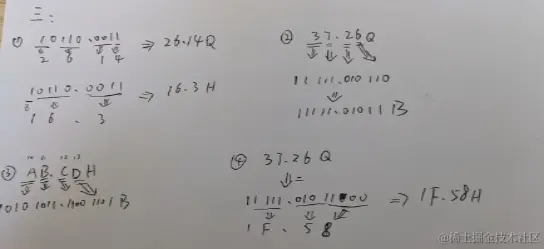 三:
① 10110.0011 ⇒ 26.14Q
2 6 1 4
10110.0011 ⇒ 16.3H
1 6 . 3
② 37.26Q
11 111.010 110
⇓
11111.01011B
③ 10 11 12 13
AB.CDH
1010 1011.1100 1101B
④ 37.26Q
⇓=
11 111.010 11000 ⇒ 1F.58H
1 F . 5 8
@稀土掘金技术社区